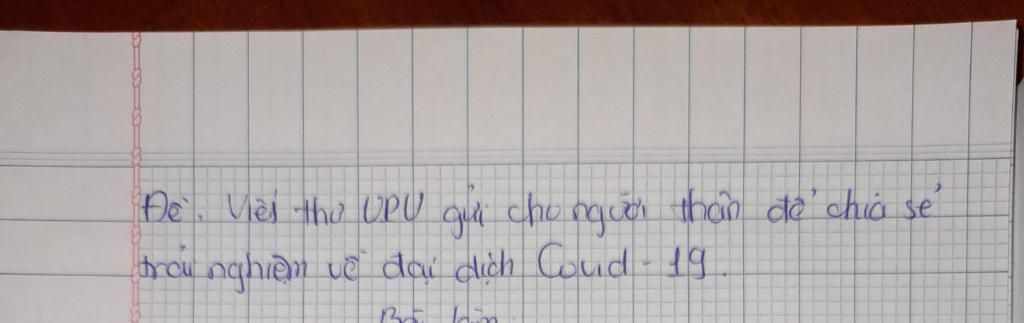 Đề. Viết thư UPU gửi cho người thân để chia sẻ
trải nghiệm về đại dịch Covid - 19.
Bài làm